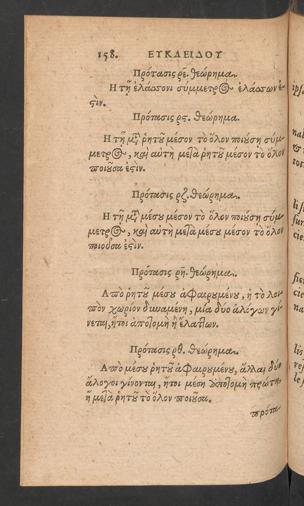 158. ΕΥΚΛΕΙΔΟΥ
Πρότασις ρε. θεώρημα.
Η τῇ ἐλάσσονι σύμμετρος ἐλάσσων ἐ-
ςίν.
Πρότασις ρς. θεώρημα.
Η τῇ μτ̃ ῥητοῦ μέσον τὸ ὅλον ποιούσῃ σύμ-
μετρος, καὶ αὐτὴ μετὰ ῥητοῦ μέσον τὸ ὅλον
ποιοῦσα ἐςίν.
Πρότασις ρζ. θεώρημα.
Η τῇ μτ̃ μέσου μέσον τὸ ὅλον ποιούσῃ σύμ-
μετρος, καὶ αὐτὴ μετὰ μέσου μέσον τὸ ὅλον
ποιοῦσα ἐςίν.
Πρότασις ρη. θεώρημα.
Απὸ ῥητοῦ μέσου ἀφαιρουμένου, ἡ τὸ λοι-
πὸν χωρίον δυναμένη, μία δύο ἀλόγων γί-
νεται, ἤτοι ἀποτομὴ ἢ ἐλάττων.
Πρότασις ρθ. θεώρημα.
Απὸ μέσου ῥητοῦ ἀφαιρουμένου, ἄλλαι δύο
ἄλογοι γίνονται, ἤτοι μέση ἀποτομὴ πρώτη,
ἢ μετὰ ῥητοῦ τὸ ὅλον ποιοῦσα.
πρότα-